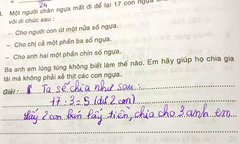 24
1. Một người chăn ngựa mất đi để lại 17 con ngựa
với di chúc sau :
– Cho người con út một nửa số ngựa.
– Cho chị cả một phần ba số ngựa.
– Cho anh hai một phần chín số ngựa.
Ba anh em lúng túng không biết làm thế nào. Em hãy giúp họ chia gia
tài mà không phải xẻ thịt các con ngựa.
Giải : Ta sẽ chia như sau :
17 : 3 = 5 (dư 2 con)
lấy 2 con bán lấy tiền, chia cho 3 anh em